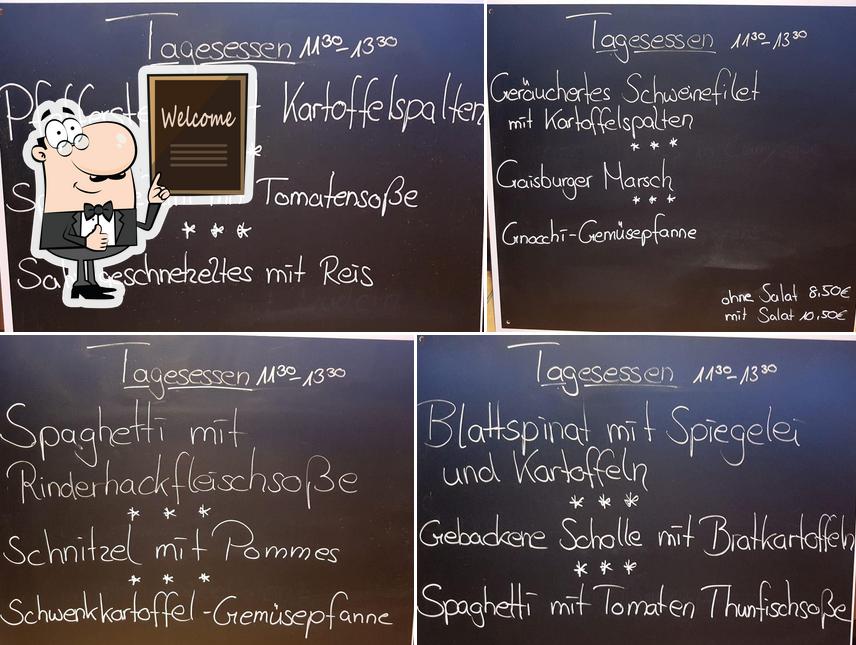 Tagesessen 11³⁰-13³⁰
Kartoffelspalten
Welcome
Tomatensoße
* * *
mit Reis
Tagesessen 11³⁰-13³⁰
Geräuchertes Schweinefilet
mit Kartoffelspalten
* * *
Gaisburger Marsch
* * *
Gnocchi-Gemüsepfanne
ohne Salat 8,50€
mit Salat 10,50€
Tagesessen 11³⁰-13³⁰
Spaghetti mit
Rinderhackfleischsoße
* * *
Schnitzel mit Pommes
* * *
Schwenkkartoffel-Gemüsepfanne
Tagesessen 11³⁰-13³⁰
Blattspinat mit Spiegelei
und Kartoffeln
* * *
Gebackene Scholle mit Bratkartoffeln
* * *
Spaghetti mit Tomaten Thunfischsoße